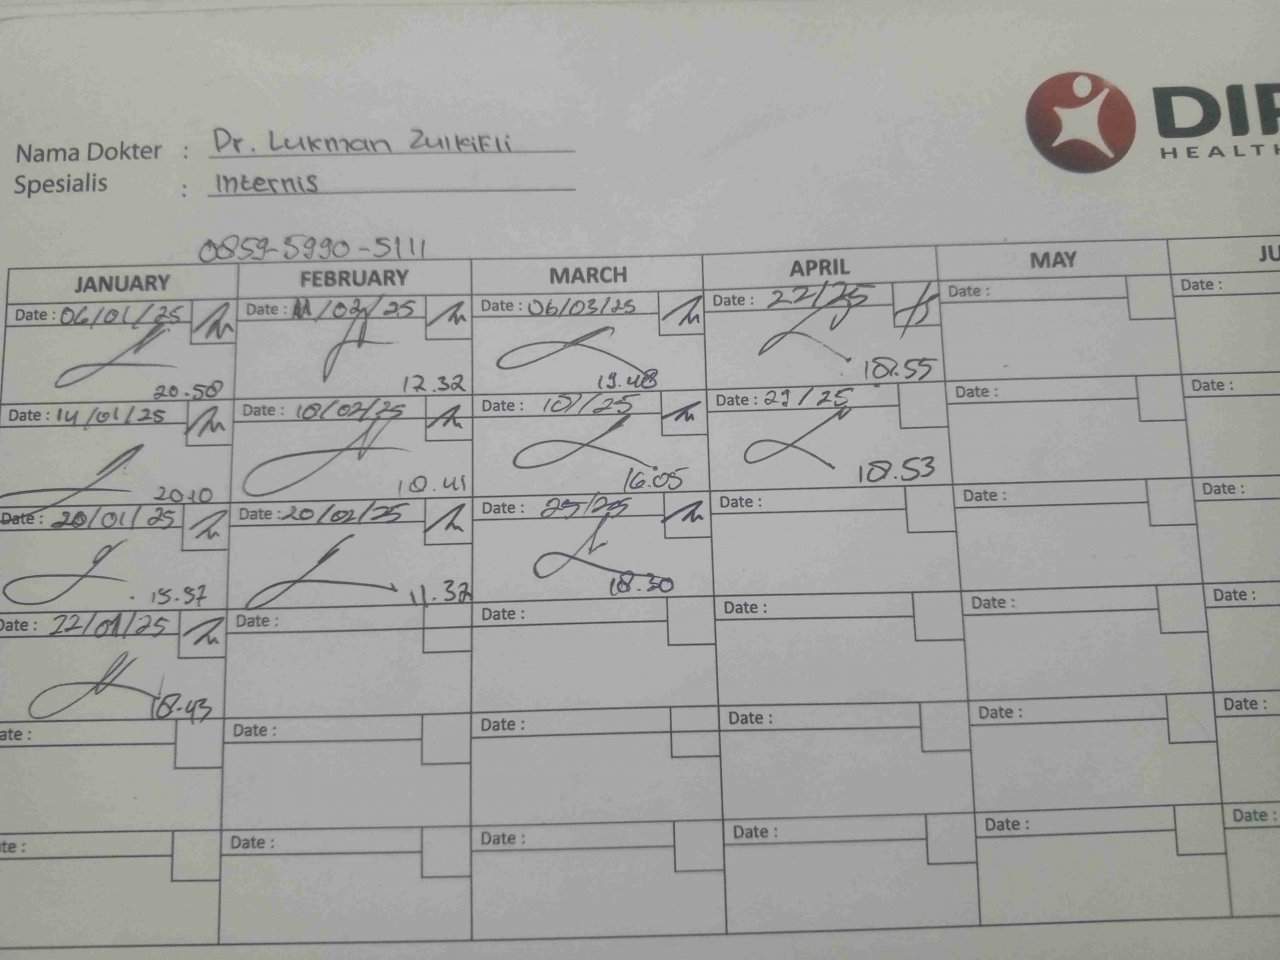 DIP
HEALTH
Nama Dokter : Dr. Lukman Zulkifli
Spesialis : Internis
0859-5990-5111
JANUARY FEBRUARY MARCH APRIL MAY JU
Date : 06/01/25 Date : 11/02/25 Date : 06/03/25 Date : 22/25 Date : Date :
20.50 12.32 19.48 18.55
Date : 14/01/25 Date : 18/02/25 Date : 18/25 Date : 29/25 Date : Date :
20.10 18.41 16.05 18.53
Date : 20/01/25 Date : 20/02/25 Date : 25/25 Date : Date : Date :
15.57 11.32 18.30
Date : 22/01/25 Date : Date : Date : Date : Date :
18.43
ate : Date : Date : Date : Date : Date :
te : Date : Date : Date : Date : Date :